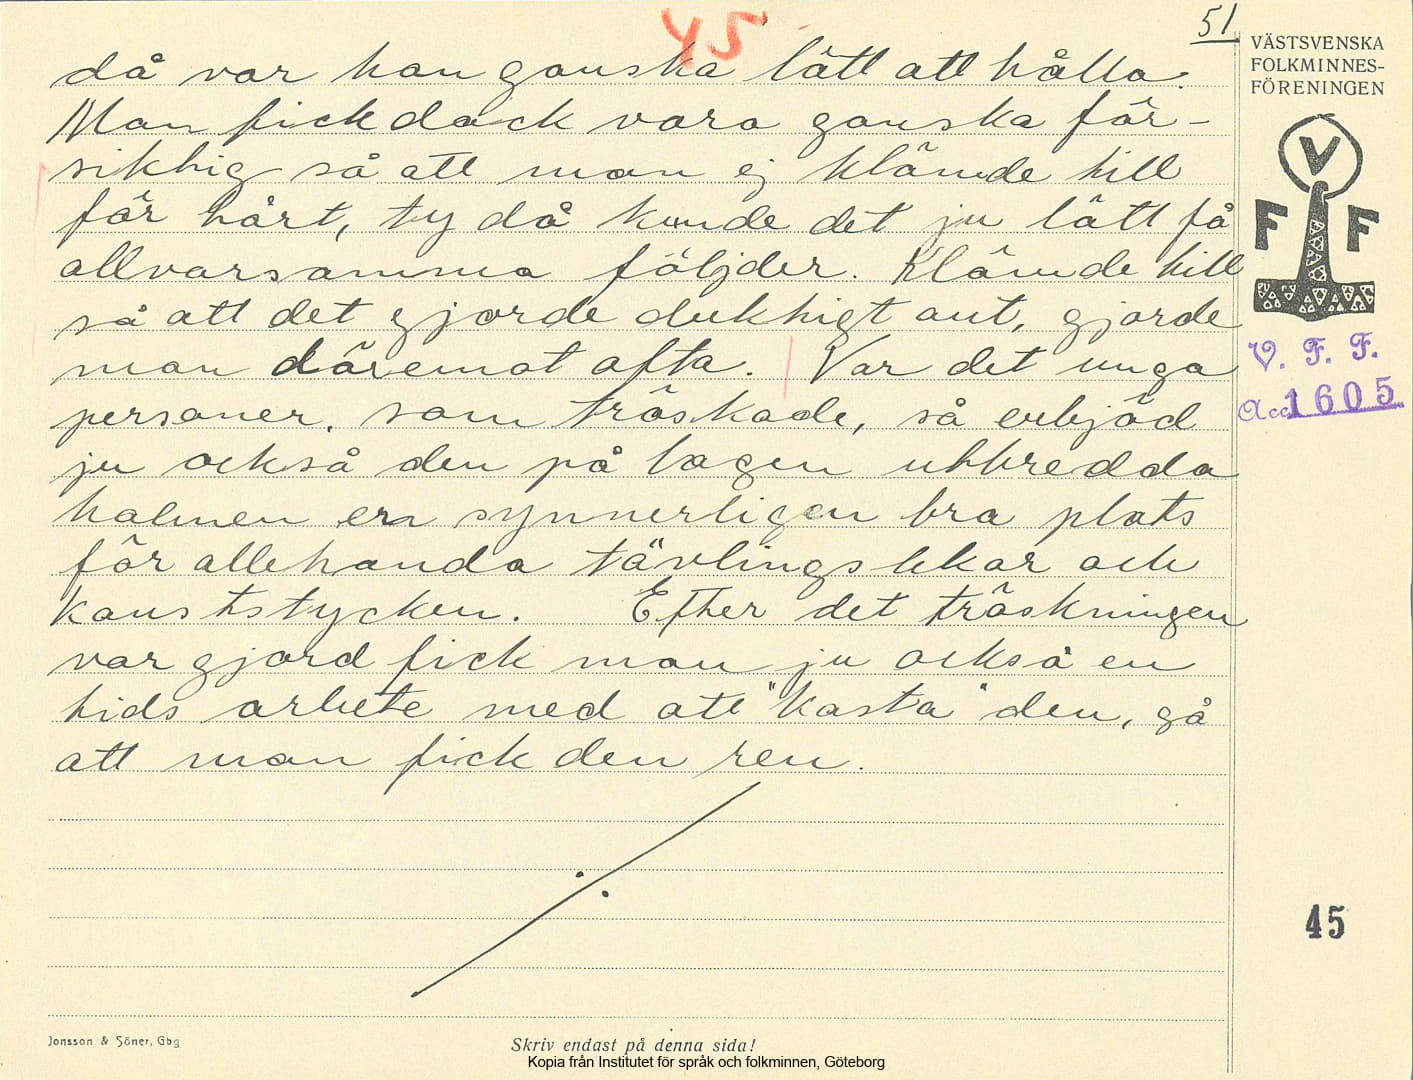 45
51
då var han ganska lätt att hålla.
Man fick dock vara ganska för-
siktig så att man ej klämde till
för hårt, ty då kunde det ju lätt få
allvarsamma följder. Klämde till
så att det gjorde duktigt ont, gjorde
man däremot ofta. Var det unga
personer, som tröskade, så erbjöd
ju också den på logen utbredda
halmen en synnerligen bra plats
för allehanda tävlingslekar och
konststycken. Efter det tröskningen
var gjord fick man ju också en
tids arbete med att "kasta" den, så
att man fick den ren.
VÄSTSVENSKA
FOLKMINNES-
FÖRENINGEN
V
F F
V. F. F.
Acc 1605
45
Jonsson & Söner, Gbg
Skriv endast på denna sida!
Kopia från Institutet för språk och folkminnen, Göteborg